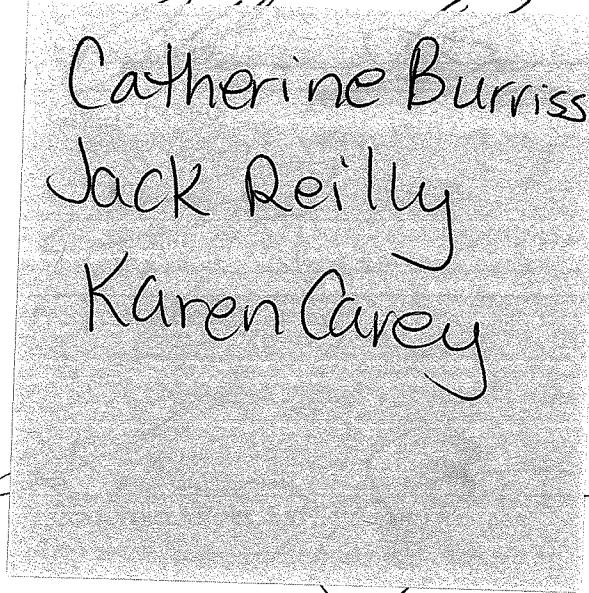 Catherine Burriss
Jack Reilly
Karen Carey